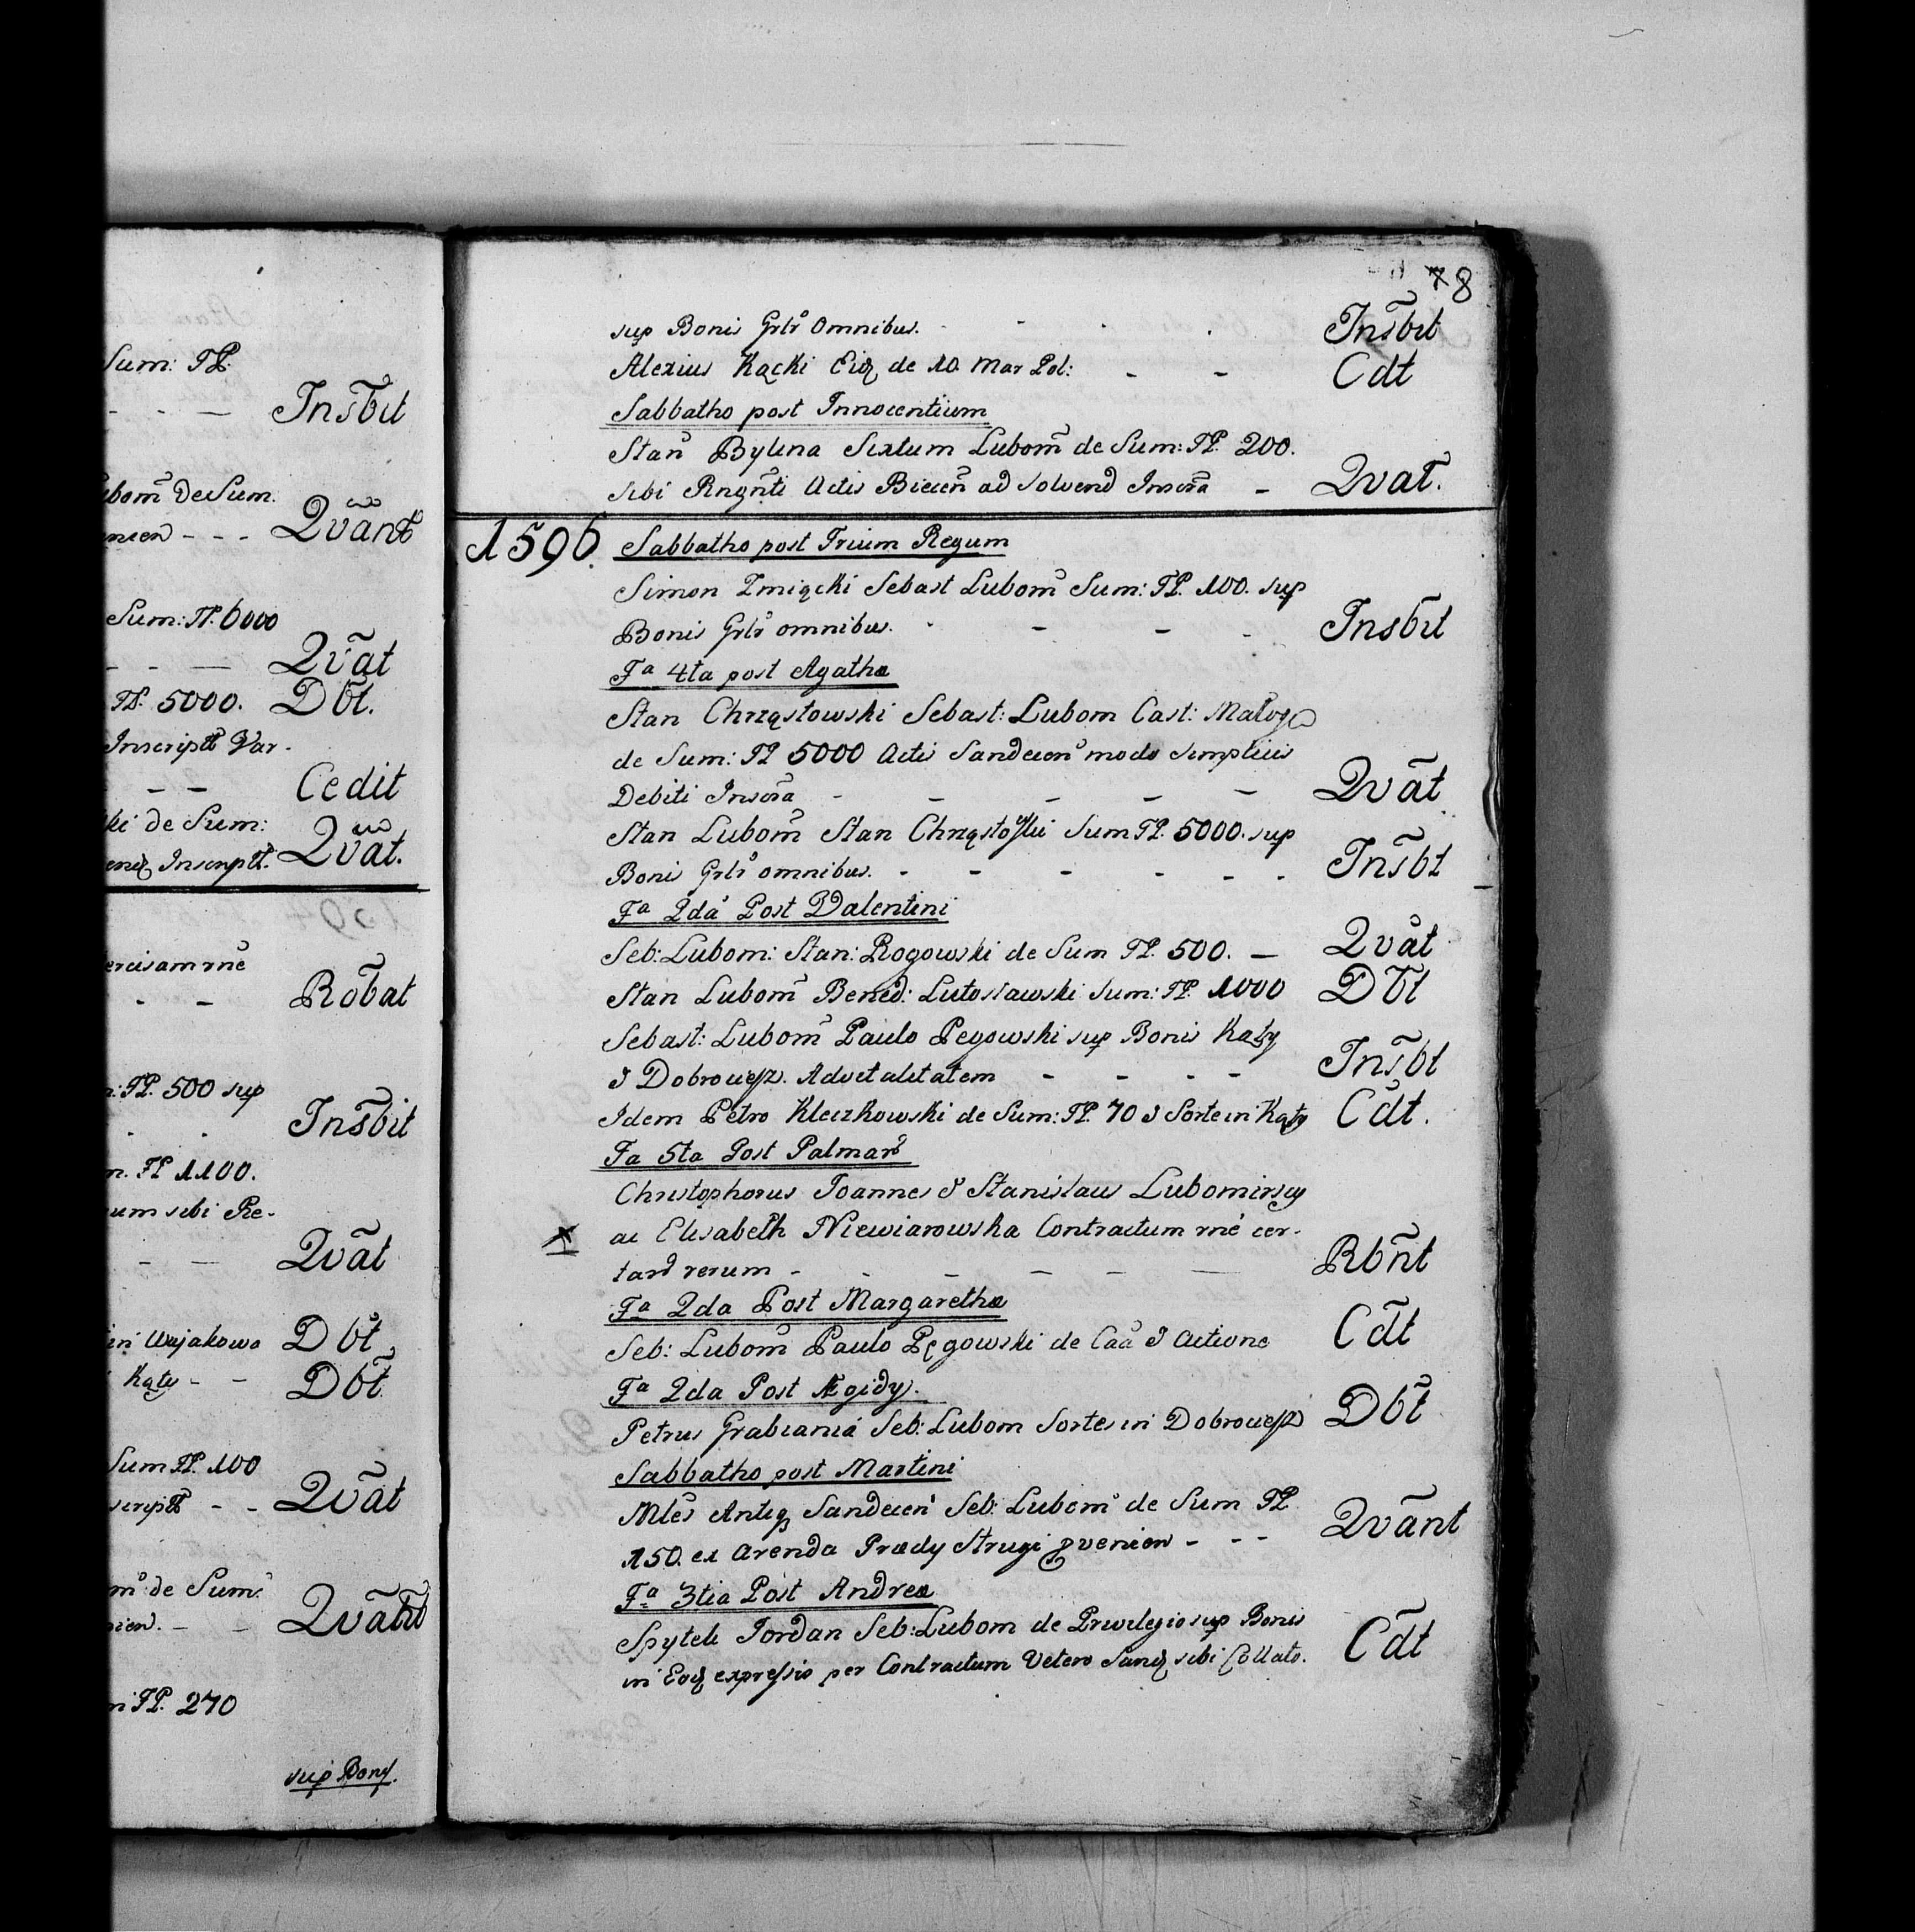 Sum: Fl:
- - — Insbit
Lubom̃ de Sum.
nien - - - Qvãnt
Sum: Fl. 6000
- - — Qvãt
Fl. 5000. Dbt.
Inscriptt Var-
- - Cedit
ski de Sum:
Inscriptt. Qvãt.
ercisam rne
- - Robat
Fl. 500 sup
. . Insbit
m. Fl 1100.
um sibi Re-
- — Qvãt
in Wajakowo Dbt
Kąty - - Dbt
Sum Fl. 100
scriptt - - Qvãt
m̃ de Sum:
nien. - - Qvãnt
Fl. 270
sup Bony.
78
sup Bonis Grlr Omnibus. - - . . Insbit
Alexius Kącki Eidq de 10 Mar Pol: - - Cdt
Sabbatho post Innocentium
Stan Bylina Sixtum Lubom̃ de Sum: Fl. 200.
sibi Rngñti Actis Biecen̄ ad solvend Inscrã - Qvat.
1596. Sabbatho post Trium Regum
Simon Zmiącki Sebast Lubom̃ Sum: Fl. 100. sup
Bonis Grlr omnibus. - - - - Insbit
Fa 4ta post Agathæ
Stan Chrząstowski Sebast: Lubom Cast: Małog
de Sum: Fl 5000 Actis Sandecen̄ modo simplicis
Debiti Inscrã - - - - - Qvãt
Stan Lubom̃ Stan Chrząstowski Sum Fl. 5000. sup
Bonis Grlr omnibus. - - - - - - Insbt
Fa 2da Post Valentini
Seb: Lubom: Stan: Rogowski de Sum Fl. 500. — Qvãt
Stan Lubom̃ Bened: Lutosławski Sum: Fl. 1000 Dbt
Sebast: Lubom̃ Paulo Pegowski sup Bonis Kąty
& Dobrociesz. Advitalitatem - - - - Insbt
Idem Petro Kleczkowski de Sum: Fl. 70 & Sorte in Kąty Cdt.
Fa 5ta Post Palmar̃
Christophorus Joannes & Stanislaus Lubomirscy
ac Elisabeth Niewiarowska Contractum rne cer-
tard rerum - - - - - — Rbñt
Fa 2da Post Margarethæ
Seb: Lubom̃ Paulo Pęgowski de Caã & Actione Cdt
Fa 2da Post Ægidy.
Petrus Grabiania Seb: Lubom Sortes in Dobrociesz Dbt
Sabbatho post Martini
Mles Antiq Sandecen̄ Seb: Lubom̃ de Sum Fl
150. ex arenda Prædy Strugi pvenien - - - Qvãnt
Fa 3tia Post Andreæ
Spytek Jordan Seb: Lubom de Privilegio sup Bonis
in Eodq expressis per Contractum Vetero Sandq sibi Collato. Cdt